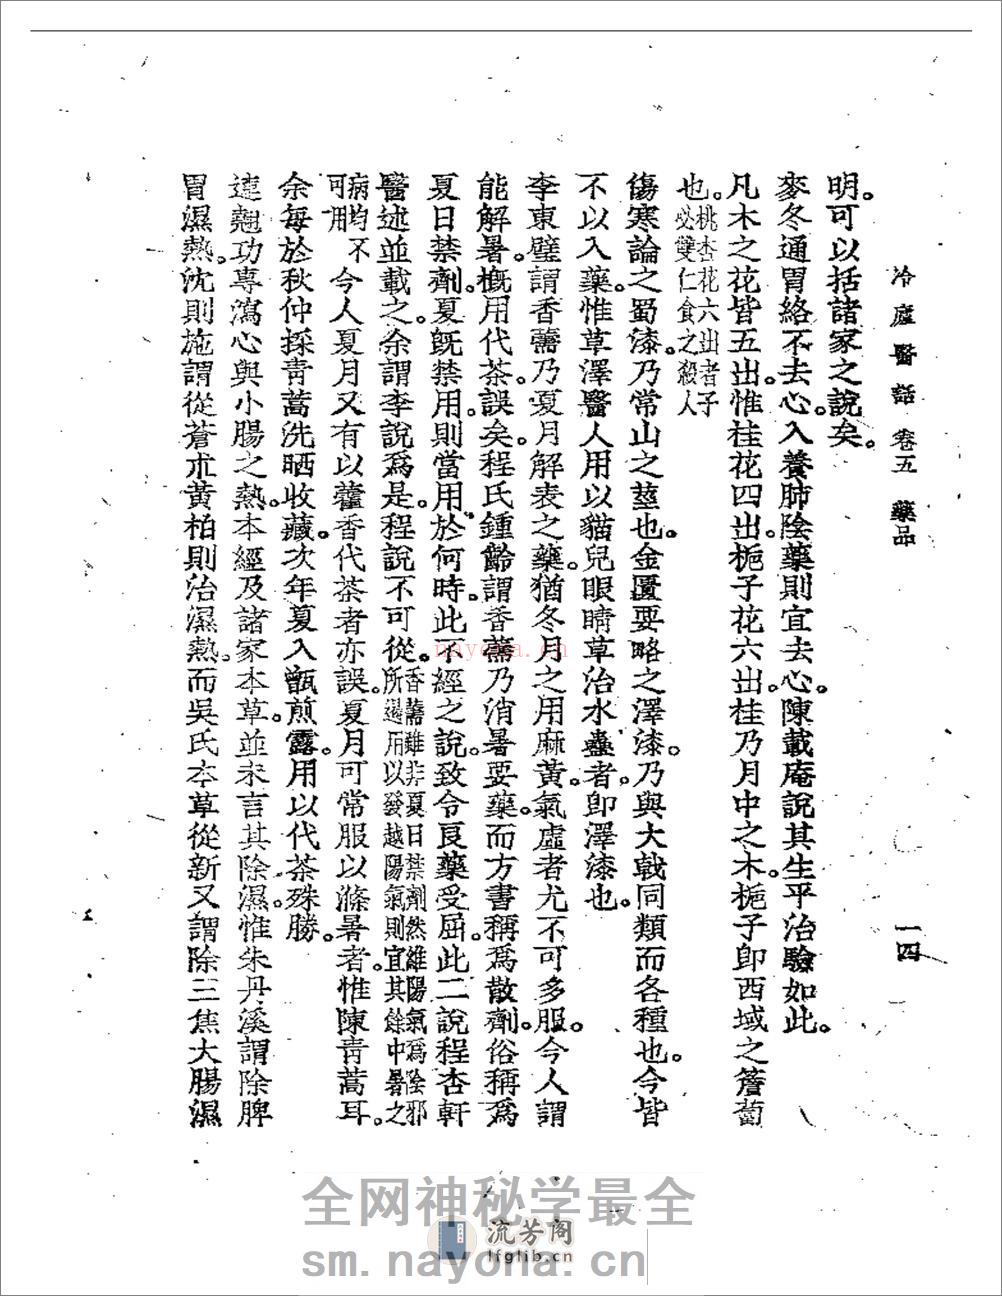 冷廬醫話 卷五 藥品 一四
明。可以括諸家之說矣。
麥冬通胃絡不去心。入養肺陰藥則宜去心。陳載庵說其生平治驗如此。
凡木之花皆五出。惟桂花四出。梔子花六出。桂乃月中之木。梔子卽西域之簷蔔
也。桃杏花六出者子必雙仁食之殺人
傷寒論之蜀漆。乃常山之莖也。金匱要略之澤漆。乃與大戟同類而各種也。今皆
不以入藥。惟草澤醫人用以貓兒眼睛草治水蠱者。卽澤漆也。
李東璧謂香薷乃夏月解表之藥。猶冬月之用麻黃。氣虛者尤不可多服。今人謂
能解暑。槪用代茶。誤矣。程氏鍾齡謂香薷乃消暑要藥。而方書稱爲散劑。俗稱爲
夏日禁劑。夏旣禁用。則當用於何時。此不經之說。致令良藥受屈。此二說程杏軒
醫述並載之。余謂李說爲是。程說不可從。香薷雖非夏日禁劑然維陽氣爲陰邪所遏用以發越陽氣則宜其餘中暑之
病均不可用 今人夏月又有以藿香代茶者亦誤。夏月可常服以滌暑者。惟陳青蒿耳。
余每於秋仲採青蒿洗晒收藏。次年夏入甑煎露。用以代茶殊勝。
連翹功專瀉心與小腸之熱。本經及諸家本草。並未言其除濕。惟朱丹溪謂除脾
胃濕熱。沈則施謂從蒼朮黃柏則治濕熱。而吳氏本草從新又謂除三焦大腸濕
nayona.cn
全网神秘学最全
流芳阁
lfglib.cn
sm.nayona.cn